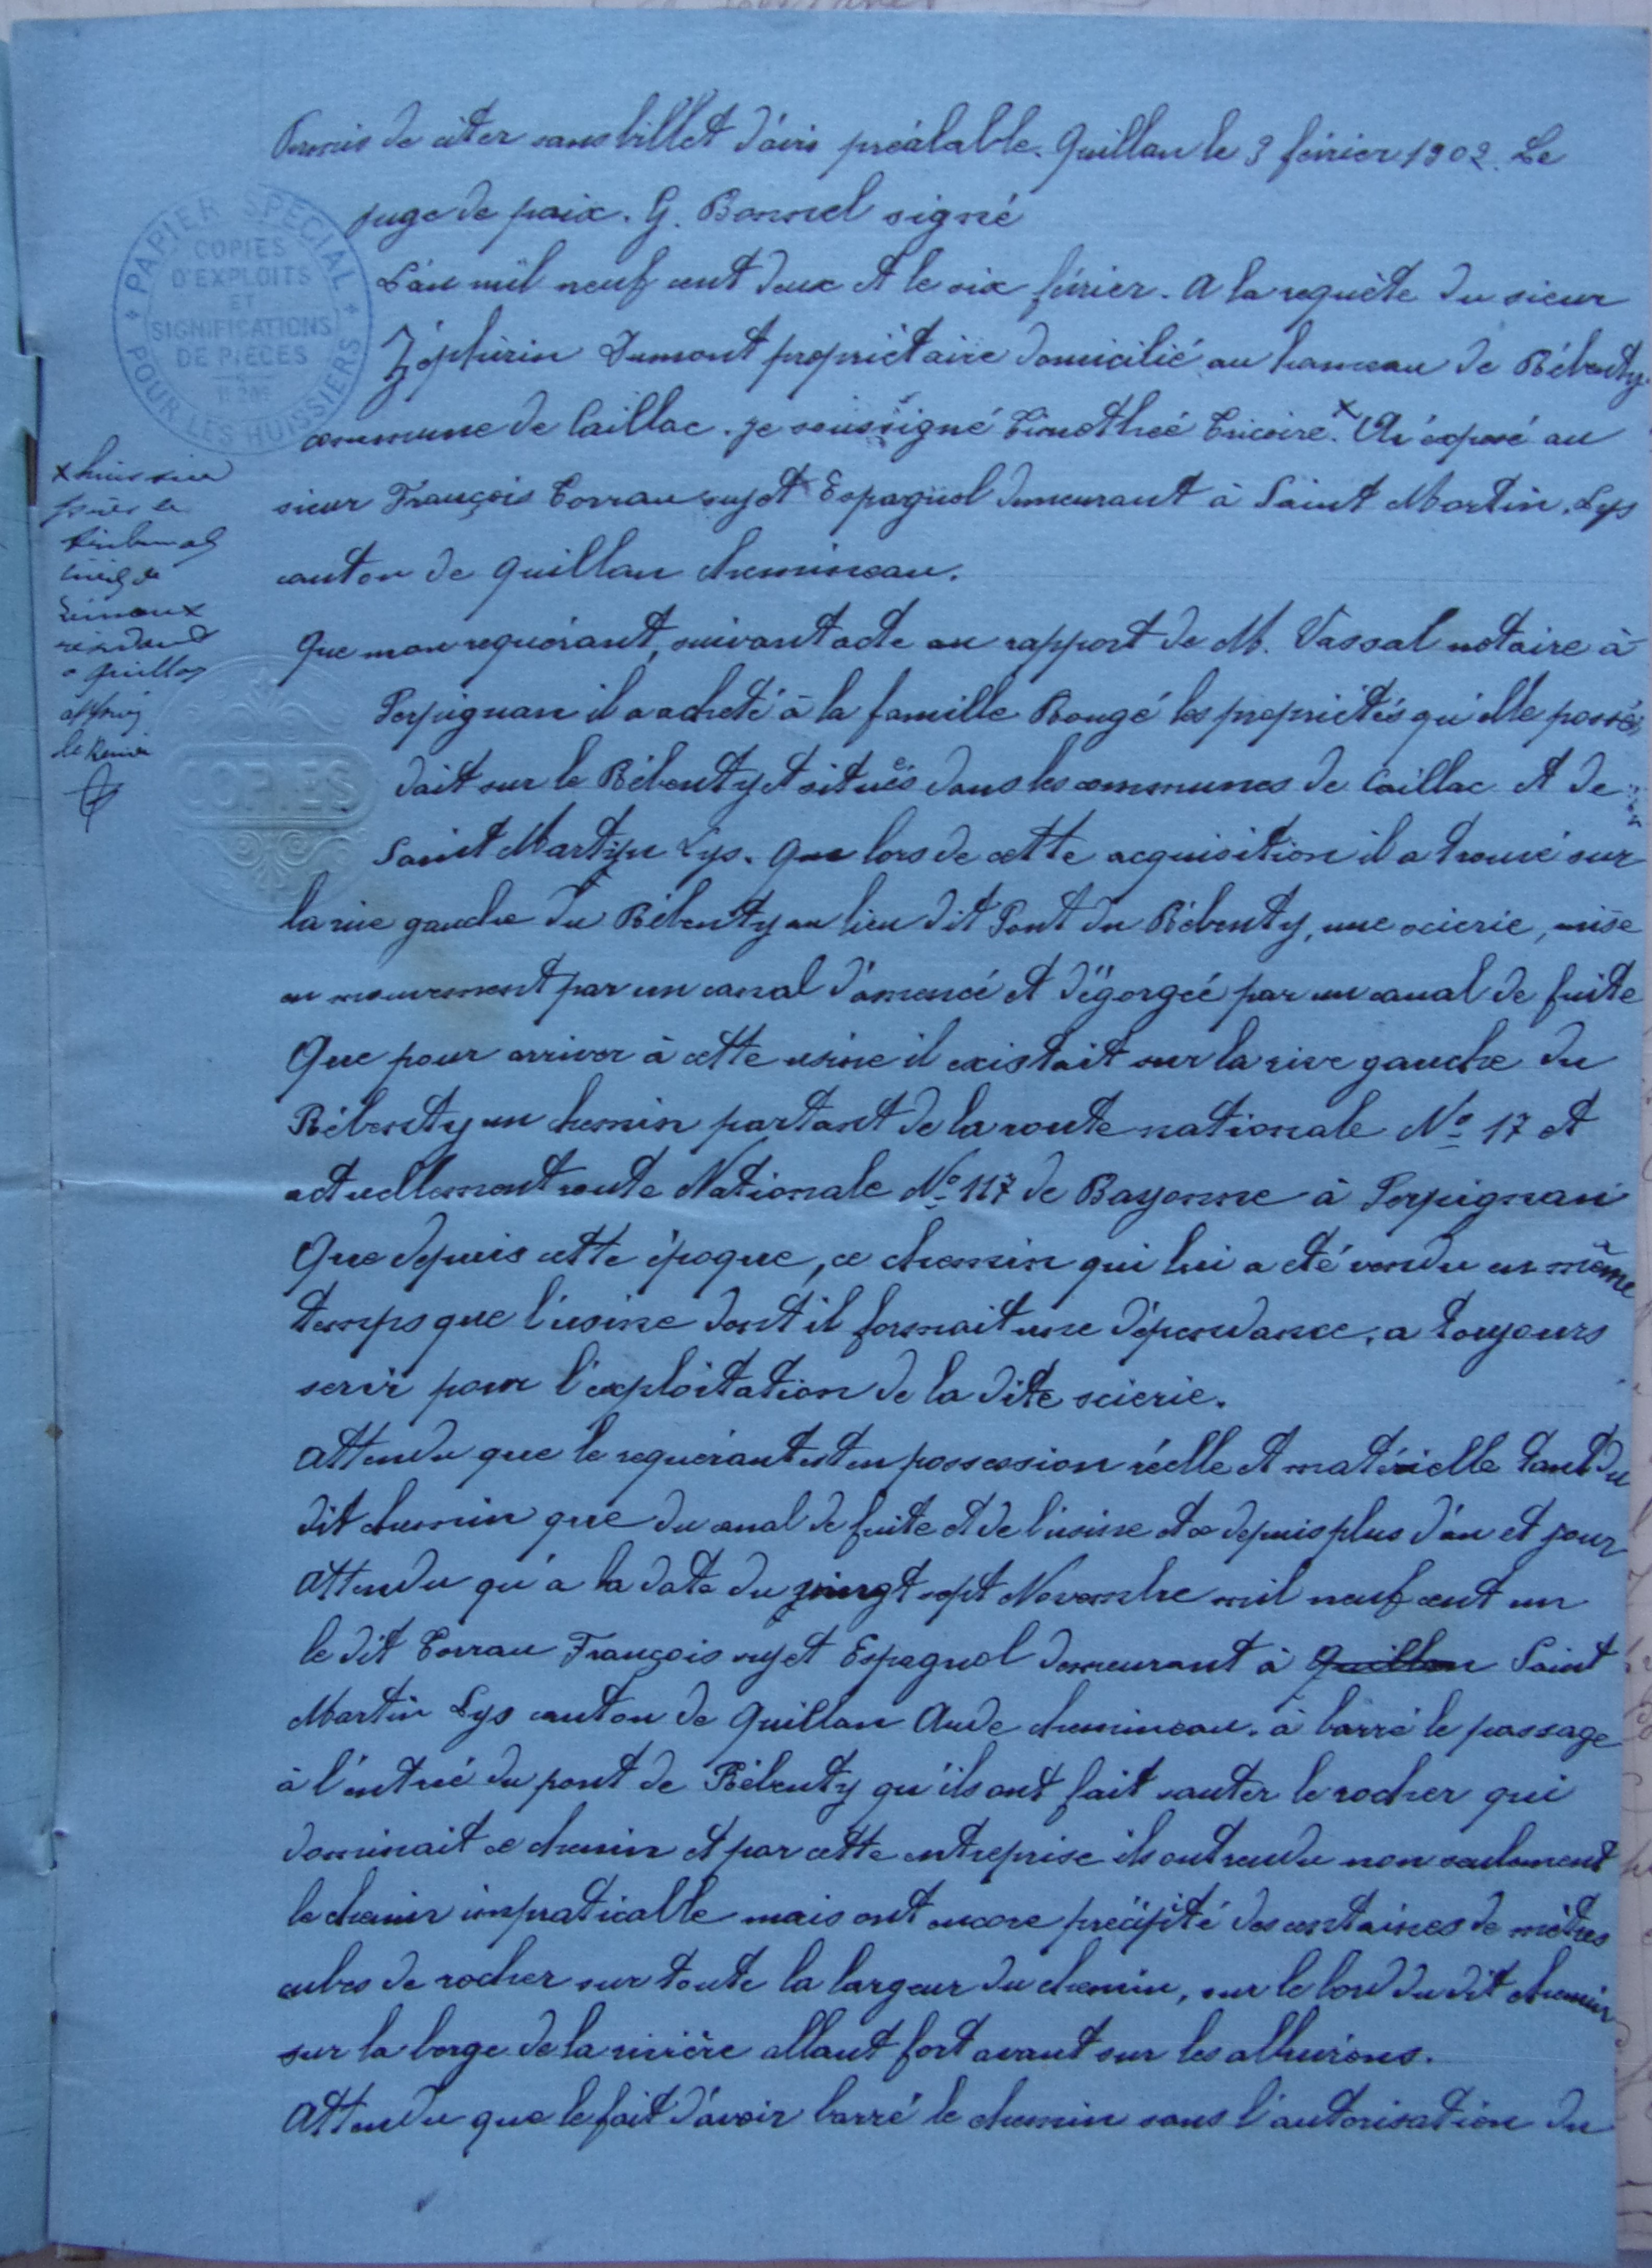 Permis de citer sans billet d'avis préalable. Quillan le 3 février 1902. Le
juge de paix. G. Bonnel signé
L'an mil neuf cent deux et le six février. A la requête du sieur
Zéphirin Dumont propriétaire domicilié au hameau de Rébenty
commune de Caillac. je soussigné Timothée Tricoire. x Ai exposé au
sieur François Torrau sujet Espagnol demeurant à Saint Martin Lys
canton de Quillan chemineau.
Que mon requérant, suivant acte au rapport de M. Vassal notaire à
Perpignan il a acheté à la famille Rougé les propriétés qu'elle possé
dait sur le Rébenty et situés dans les communes de Caillac et de
Saint Martin Lys. Que lors de cette acquisition il a trouvé sur
la rive gauche du Rébenty au lieu dit Pont du Rébenty, une scierie, mise
en mouvement par un canal d'amenée et dégorgée par un canal de fuite
Que pour arriver à cette usine il existait sur la rive gauche du
Rébenty un chemin partant de la route nationale No 17 et
actuellement route Nationale No 117 de Bayonne à Perpignan
Que depuis cette époque, ce chemin qui lui a été vendu en même
temps que l'usine dont il formait une dépendance, a toujours
servir pour l'exploitation de la dite scierie.
Attendu que le requérant est en possession réelle et matérielle tant du
dit chemin que du canal de fuite et de l'usine et ce depuis plus d'an et jour
Attendu qu'à la date du vingt sept Novembre mil neuf cent un
le dit Torrau François sujet Espagnol demeurant à Quillan Saint
Martin Lys canton de Quillan Aude chemineau. à barré le passage
à l'entrée du pont de Rébenty qu'ils ont fait sauter le rocher qui
dominait ce chemin et par cette entreprise ils ont rendu non seulement
le chemin impraticable mais ont encore précipité des centaines de mètres
cubes de rocher sur toute la largeur du chemin, sur le bord du dit chemin
sur la berge de la rivière allant fort avant sur les alluvions.
Attendu que le fait d'avoir barré le chemin sans l'autorisation du
x huissier
près le
tribunal
civil de
Limoux
résidant
a Quillan
PAPIER SPÉCIAL
COPIES
D'EXPLOITS
ET
SIGNIFICATIONS
DE PIÈCES
POUR LES HUISSIERS
COPIES